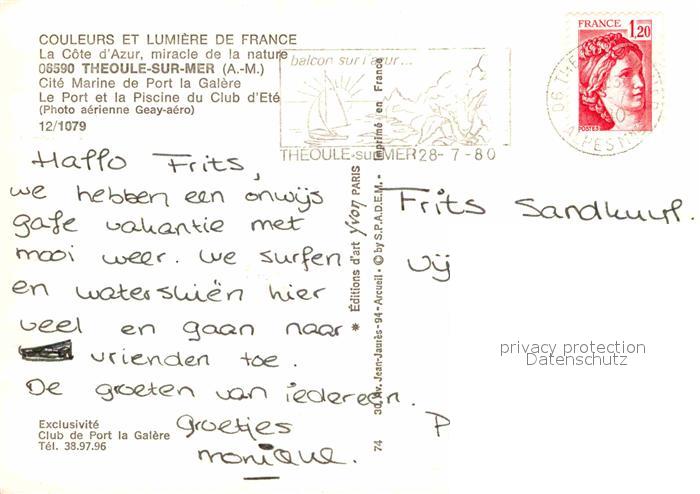 COULEURS ET LUMIÈRE DE FRANCE
La Côte d'Azur, miracle de la nature
06590 THEOULE-SUR-MER (A.-M.)
Cité Marine de Port la Galère
Le Port et la Piscine du Club d'Eté
(Photo aérienne Geay-aéro)
12/1079
balcon sur l'azur...
THÉOULE-sur-MER 28-7-80
FRANCE
1,20
POSTES
Hallo Frits,
we hebben een onwijs
gafe vakantie met
mooi weer. we surfen
en waterskiën hier
veel en gaan naar
vrienden toe.
De groeten van iedereen.
groetjes
monique.
Frits
P
Éditions d'art yvon PARIS
74 30, Av. Jean-Jaurès-94-Arcueil • © by S.P.A.D.E.M. • Imprimé en France
privacy protection
Datenschutz
Exclusivité
Club de Port la Galère
Tél. 38.97.96